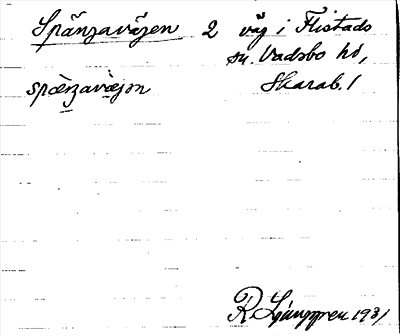 Spängavägen 2 väg i Flistads
sn. Vadsbo hd,
spæŋavæjən Skarab. l
R. Ljunggren 1931